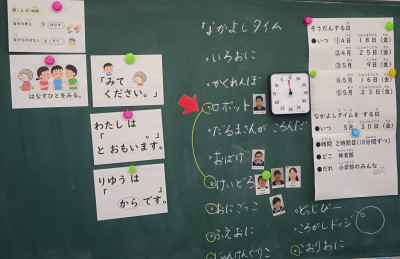 はなすひとをみる。
「みて
ください。」
わたしは
。」
とおもいます。
りゆうは「
からです。
なかよしタイム
・いろおに
・かくれんぼ
・ロボット
・だるまさんがころんだ
・おばけ
・けいどろ
・おにごっこ
・ふえおに
・じゃんけんぐりこ
・どっじびー
・ころがしドッジ
・こおりおに
そうだんする日
●いつ ①4月18日(金)
②4月25日(金)
③5月9日(金)
④5月16日(金)
⑤5月23日(金)
なかよしタイムをする日
●いつ 5月30日(金)
●時間 2時間目(10分間ずつ)
●どこ 体育館
●だれ 小学部のみんな